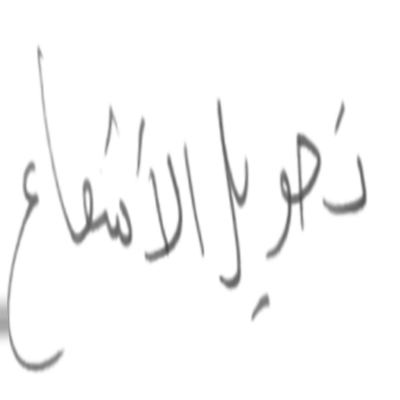 تحويل الاشعاع